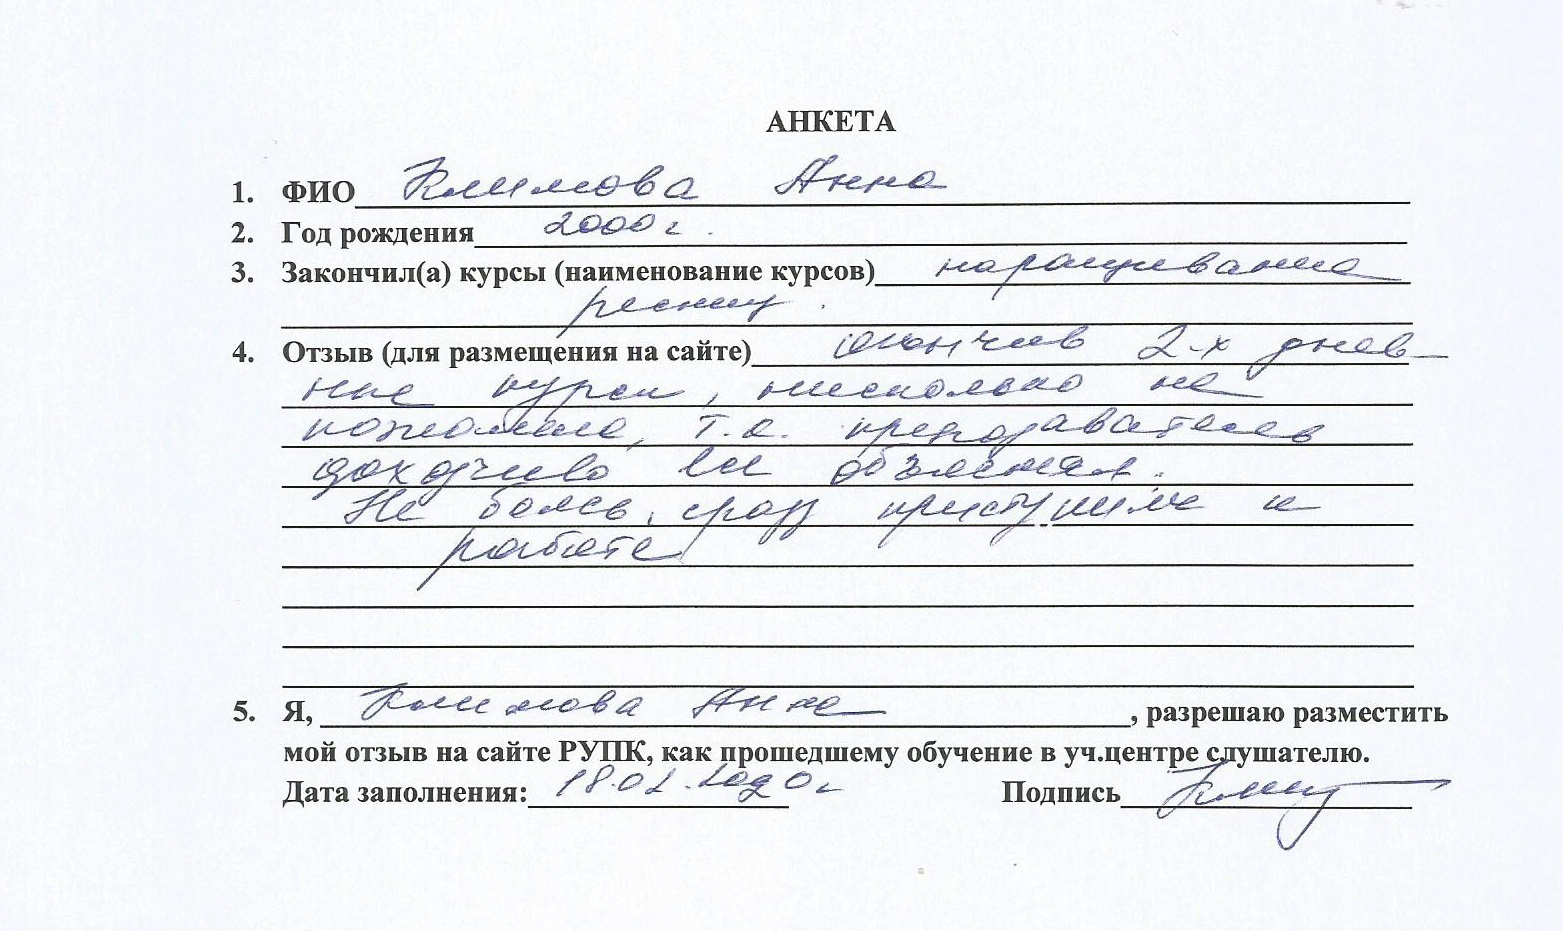 АНКЕТА
1. ФИО Климова Анна
2. Год рождения 2000 г.
3. Закончил(а) курсы (наименование курсов) наращивание
ресниц.
4. Отзыв (для размещения на сайте) окончив 2-х днев-
ные курсы, нисколько не
пожалела, т.к. преподаватель
доходчиво все объяснял.
Не боясь, сразу приступила к
работе
5. Я, Климова Анна, разрешаю разместить
мой отзыв на сайте РУПК, как прошедшему обучение в уч.центре слушателю.
Дата заполнения: 18.01.2020г Подпись